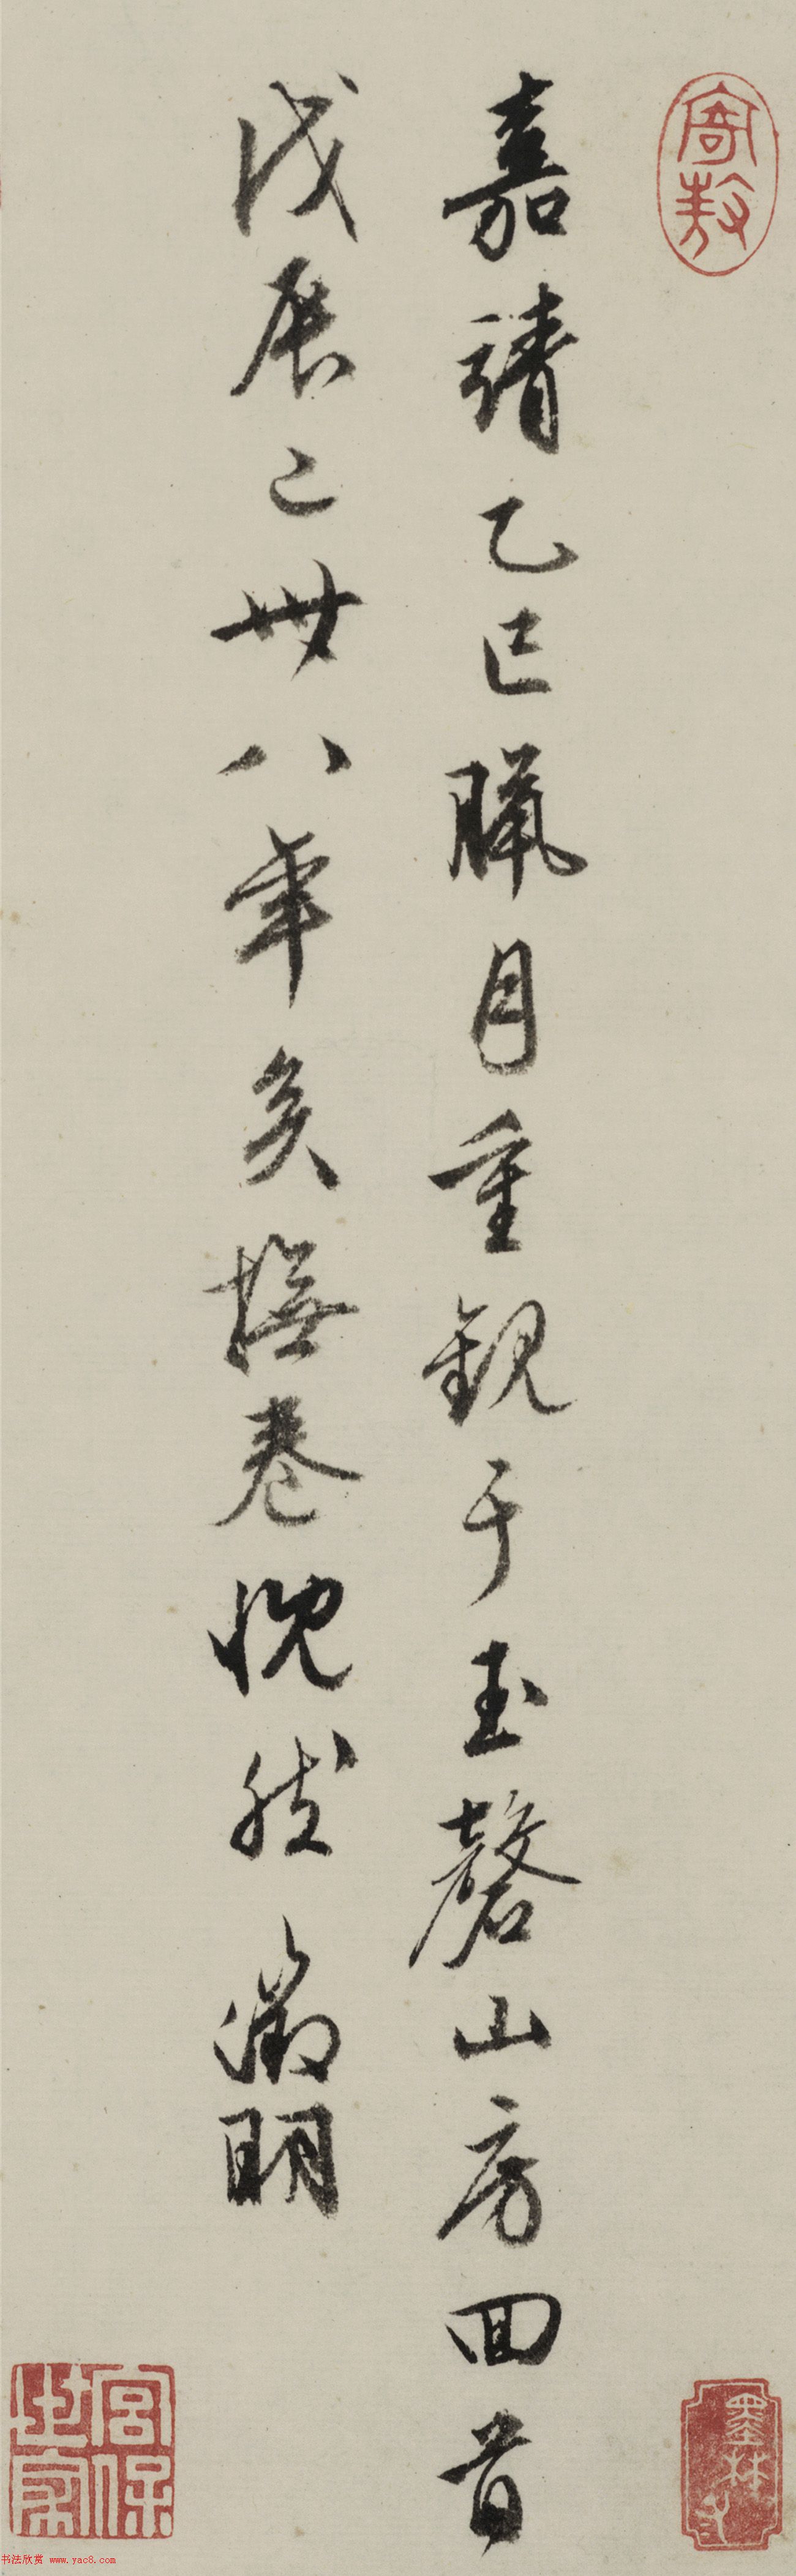 嘉靖乙巳臘月重觀于玉磬山房回首
戊辰已卅八年矣撫卷怳然 徵明
寄敖
墨林子
宮保世家
书法欣赏 www.yac8.com